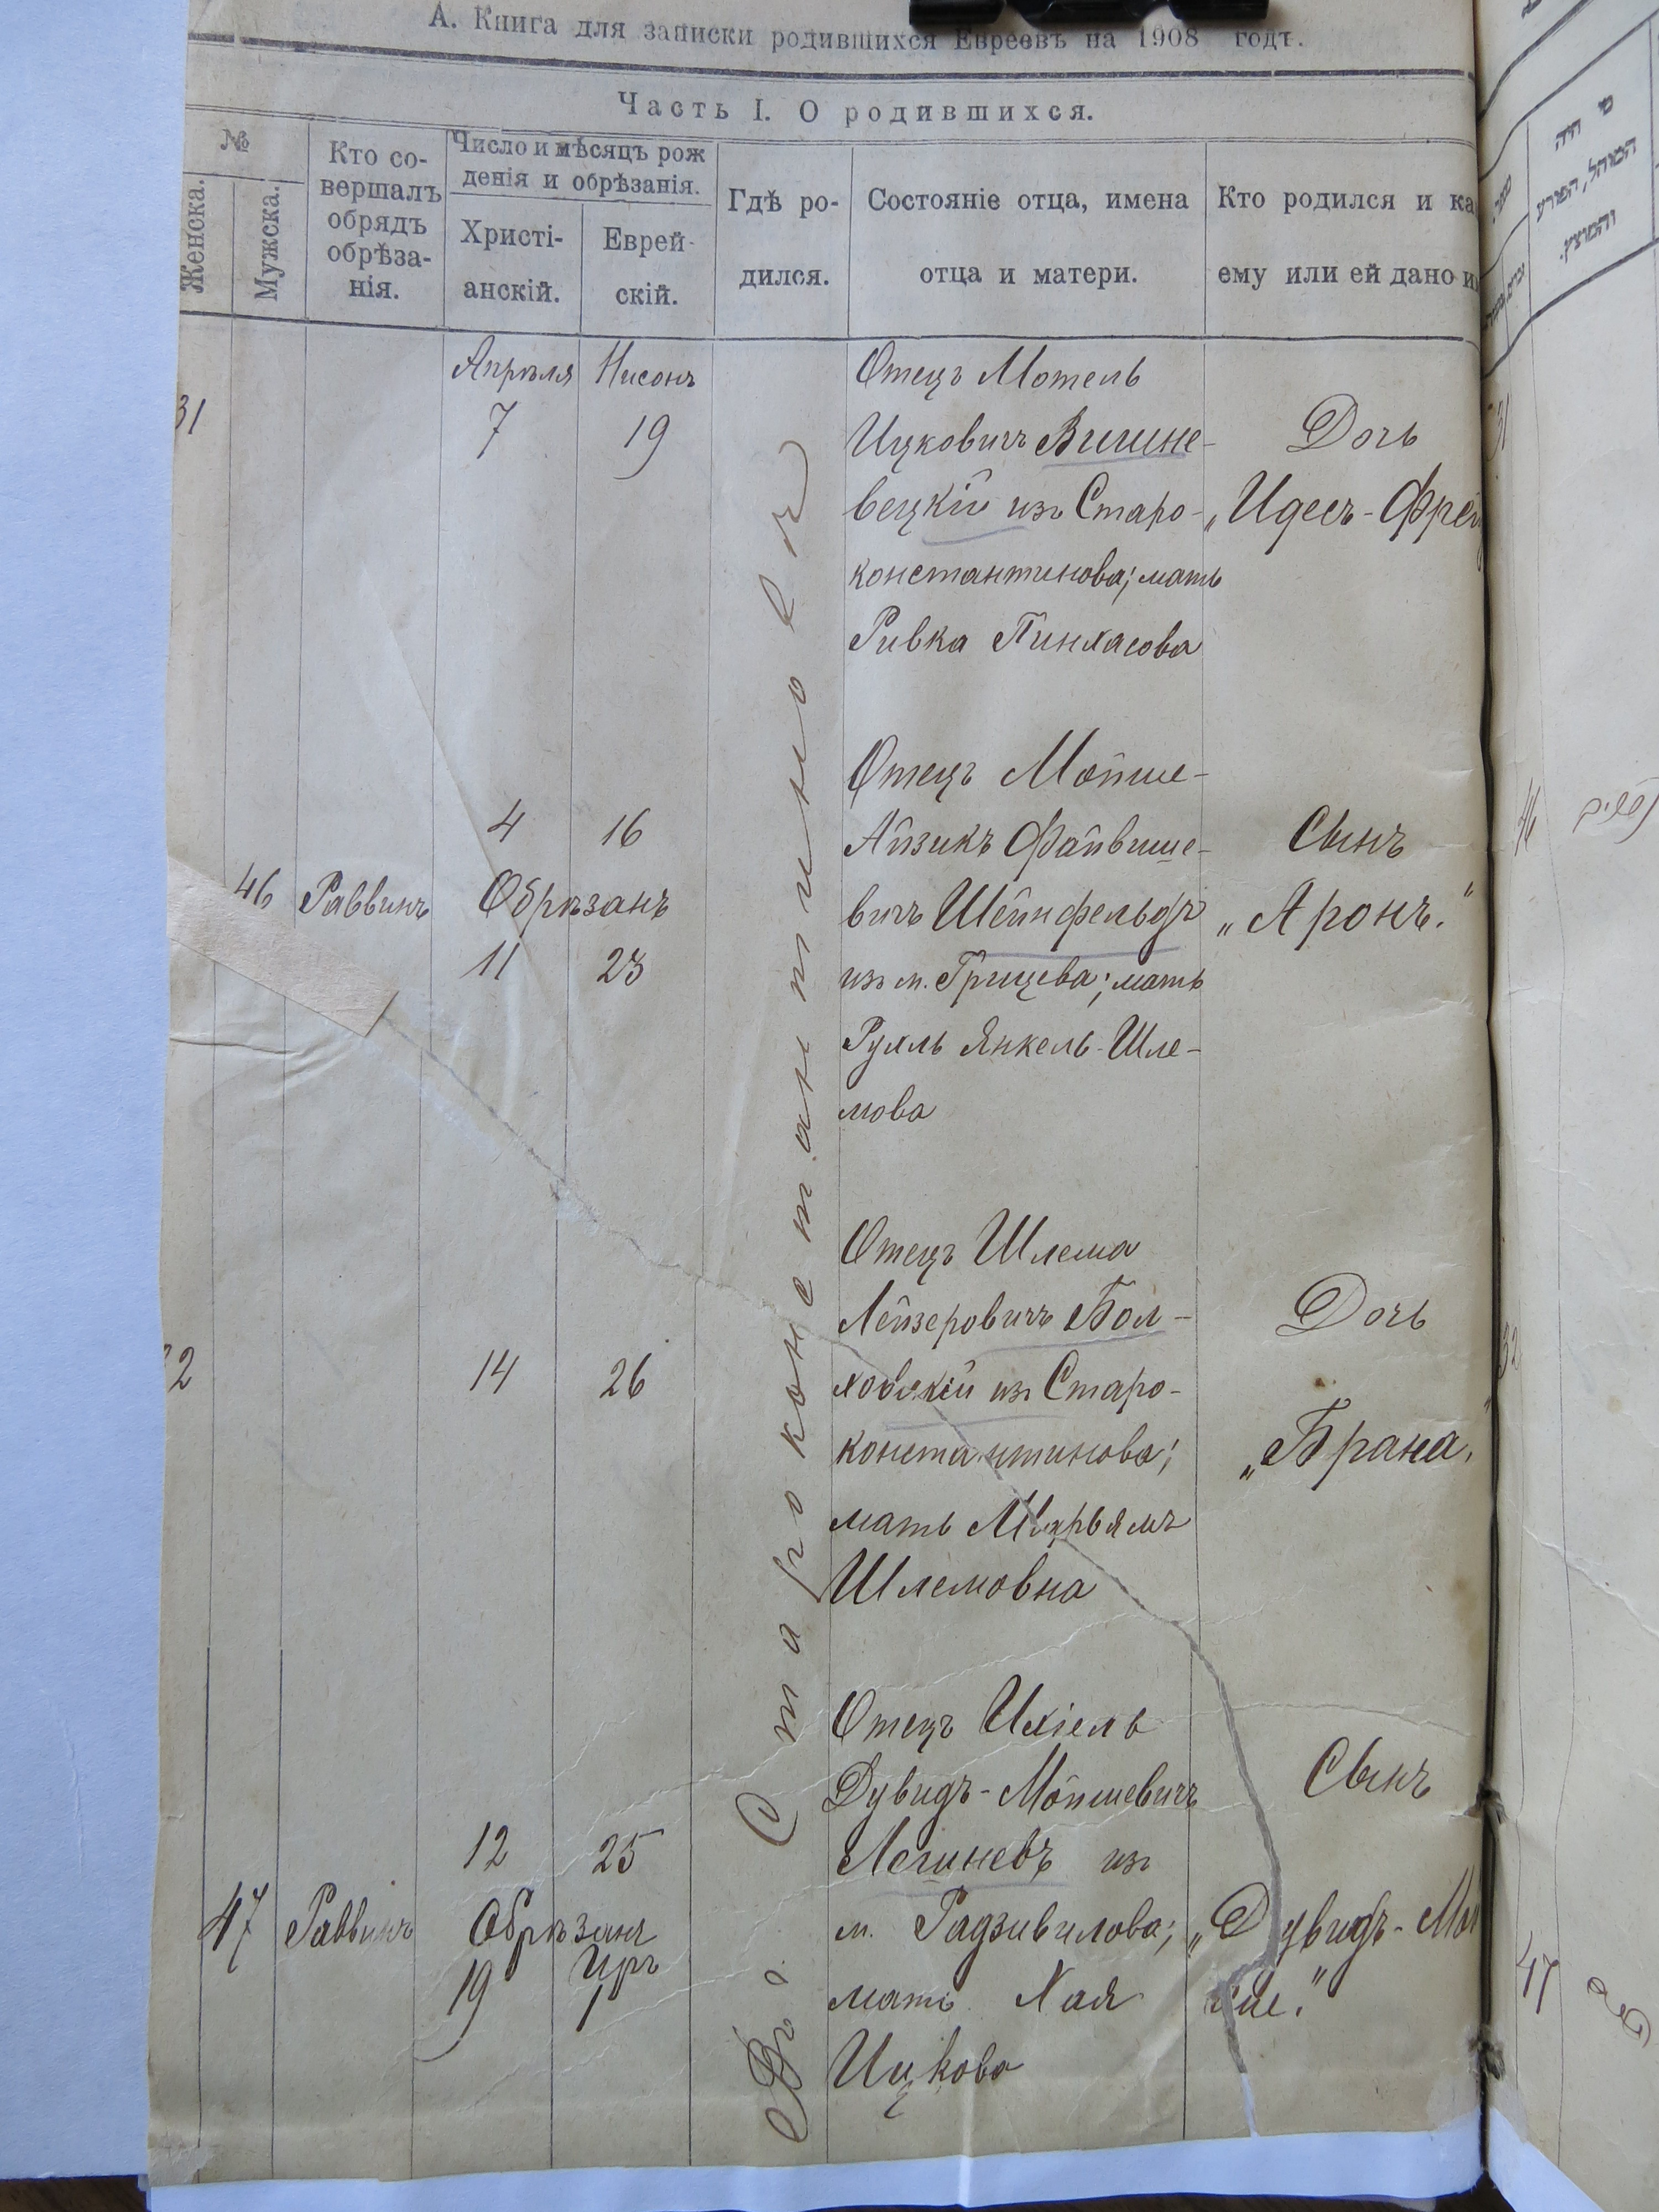 А. Книга для записки родившихся Евреевъ на 1908 годъ.
Часть I. О родившихся.
№
Женска.
Мужска.
Кто со-
вершалъ
обрядъ
обрѣза-
нія.
Число и мѣсяцъ рож
денія и обрѣзанія.
Христі-
анскій.
Еврей-
скій.
Гдѣ ро-
дился.
Состояніе отца, имена
отца и матери.
Кто родился и ка
ему или ей дано и
Въ г. Староконстантиновѣ
31
Апрѣля Нисонъ
7 19
Отецъ Мотель
Ицковичъ Вишне-
вецкій изъ Старо-
константинова; мать
Ривка Пинхасова
Дочь
„Идесъ-Фрей
46 Раввинъ
4 16
Обрѣзанъ
11 23
Отецъ Мойше-
Айзикъ Файвише-
вичъ Шейнфельдъ
изъ м. Грицева; мать
Рухль Янкель-Шле-
мова
Сынъ
„Аронъ.“
32
14 26
Отецъ Шлема
Лейзеровичъ Бол-
ховскій изъ Старо-
константинова;
мать Марьямъ
Шлемовна
Дочь
„Брана.“
47 Раввинъ
12 25
Обрѣзанъ
Иръ
19 1
Отецъ Ихіель
Дувидъ-Мойшевичъ
Легиневъ изъ
м. Радзивилова;
мать Хая
Ицкова
Сынъ
„Дувидъ-Мой
ше.“
מי היה
המוהל, הפורע
והמוצץ.
31
46
32
47